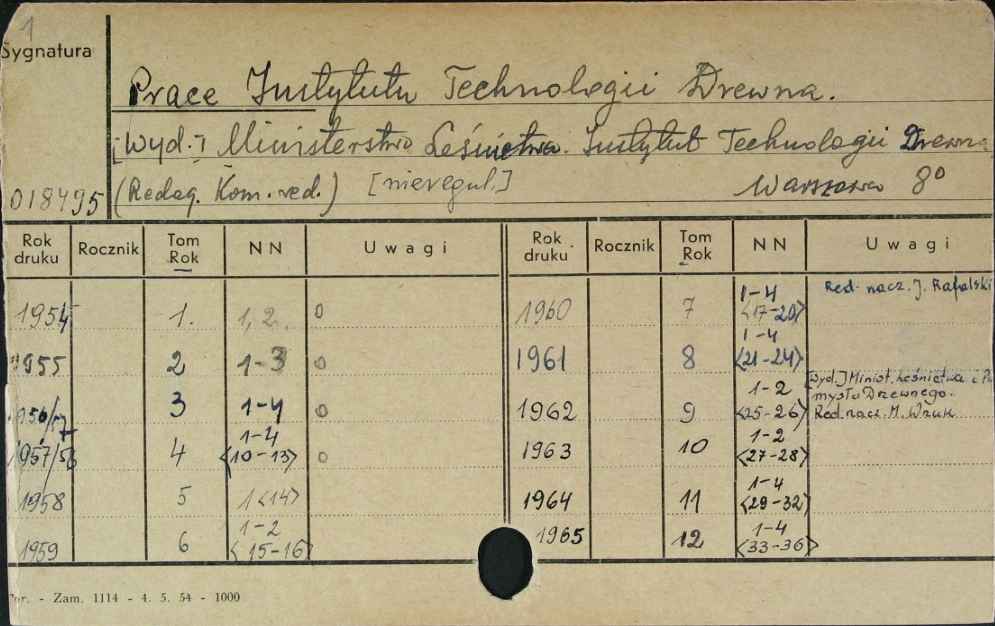 1
Sygnatura
Prace Instytutu Technologii Drewna.
[Wyd.] Ministerstwo Leśnictwa. Instytut Technologii Drewna
018495 (Redag. Kom. red.) [nieregul.] Warszawa 8°
Rok druku Rocznik Tom Rok NN Uwagi Rok druku Rocznik Tom Rok NN Uwagi
1954 1. 1, 2. o 1960 7 1-4 <17-20> Red. nacz. J. Rafalski
1955 2 1-3 o 1961 8 1-4 <21-24>
1956/57 3 1-4 o 1962 9 1-2 <25-26> [Wyd.] Minist. Leśnictwa i Przemysłu Drzewnego. Red. nacz. M.
1957/58 4 1-4 <10-13> o 1963 10 1-2 <27-28>
1958 5 1 <14> 1964 11 1-4 <29-32>
1959 6 1-2 <15-16> 1965 12 1-4 <33-36>
- Zam. 1114 - 4. 5. 54 - 1000